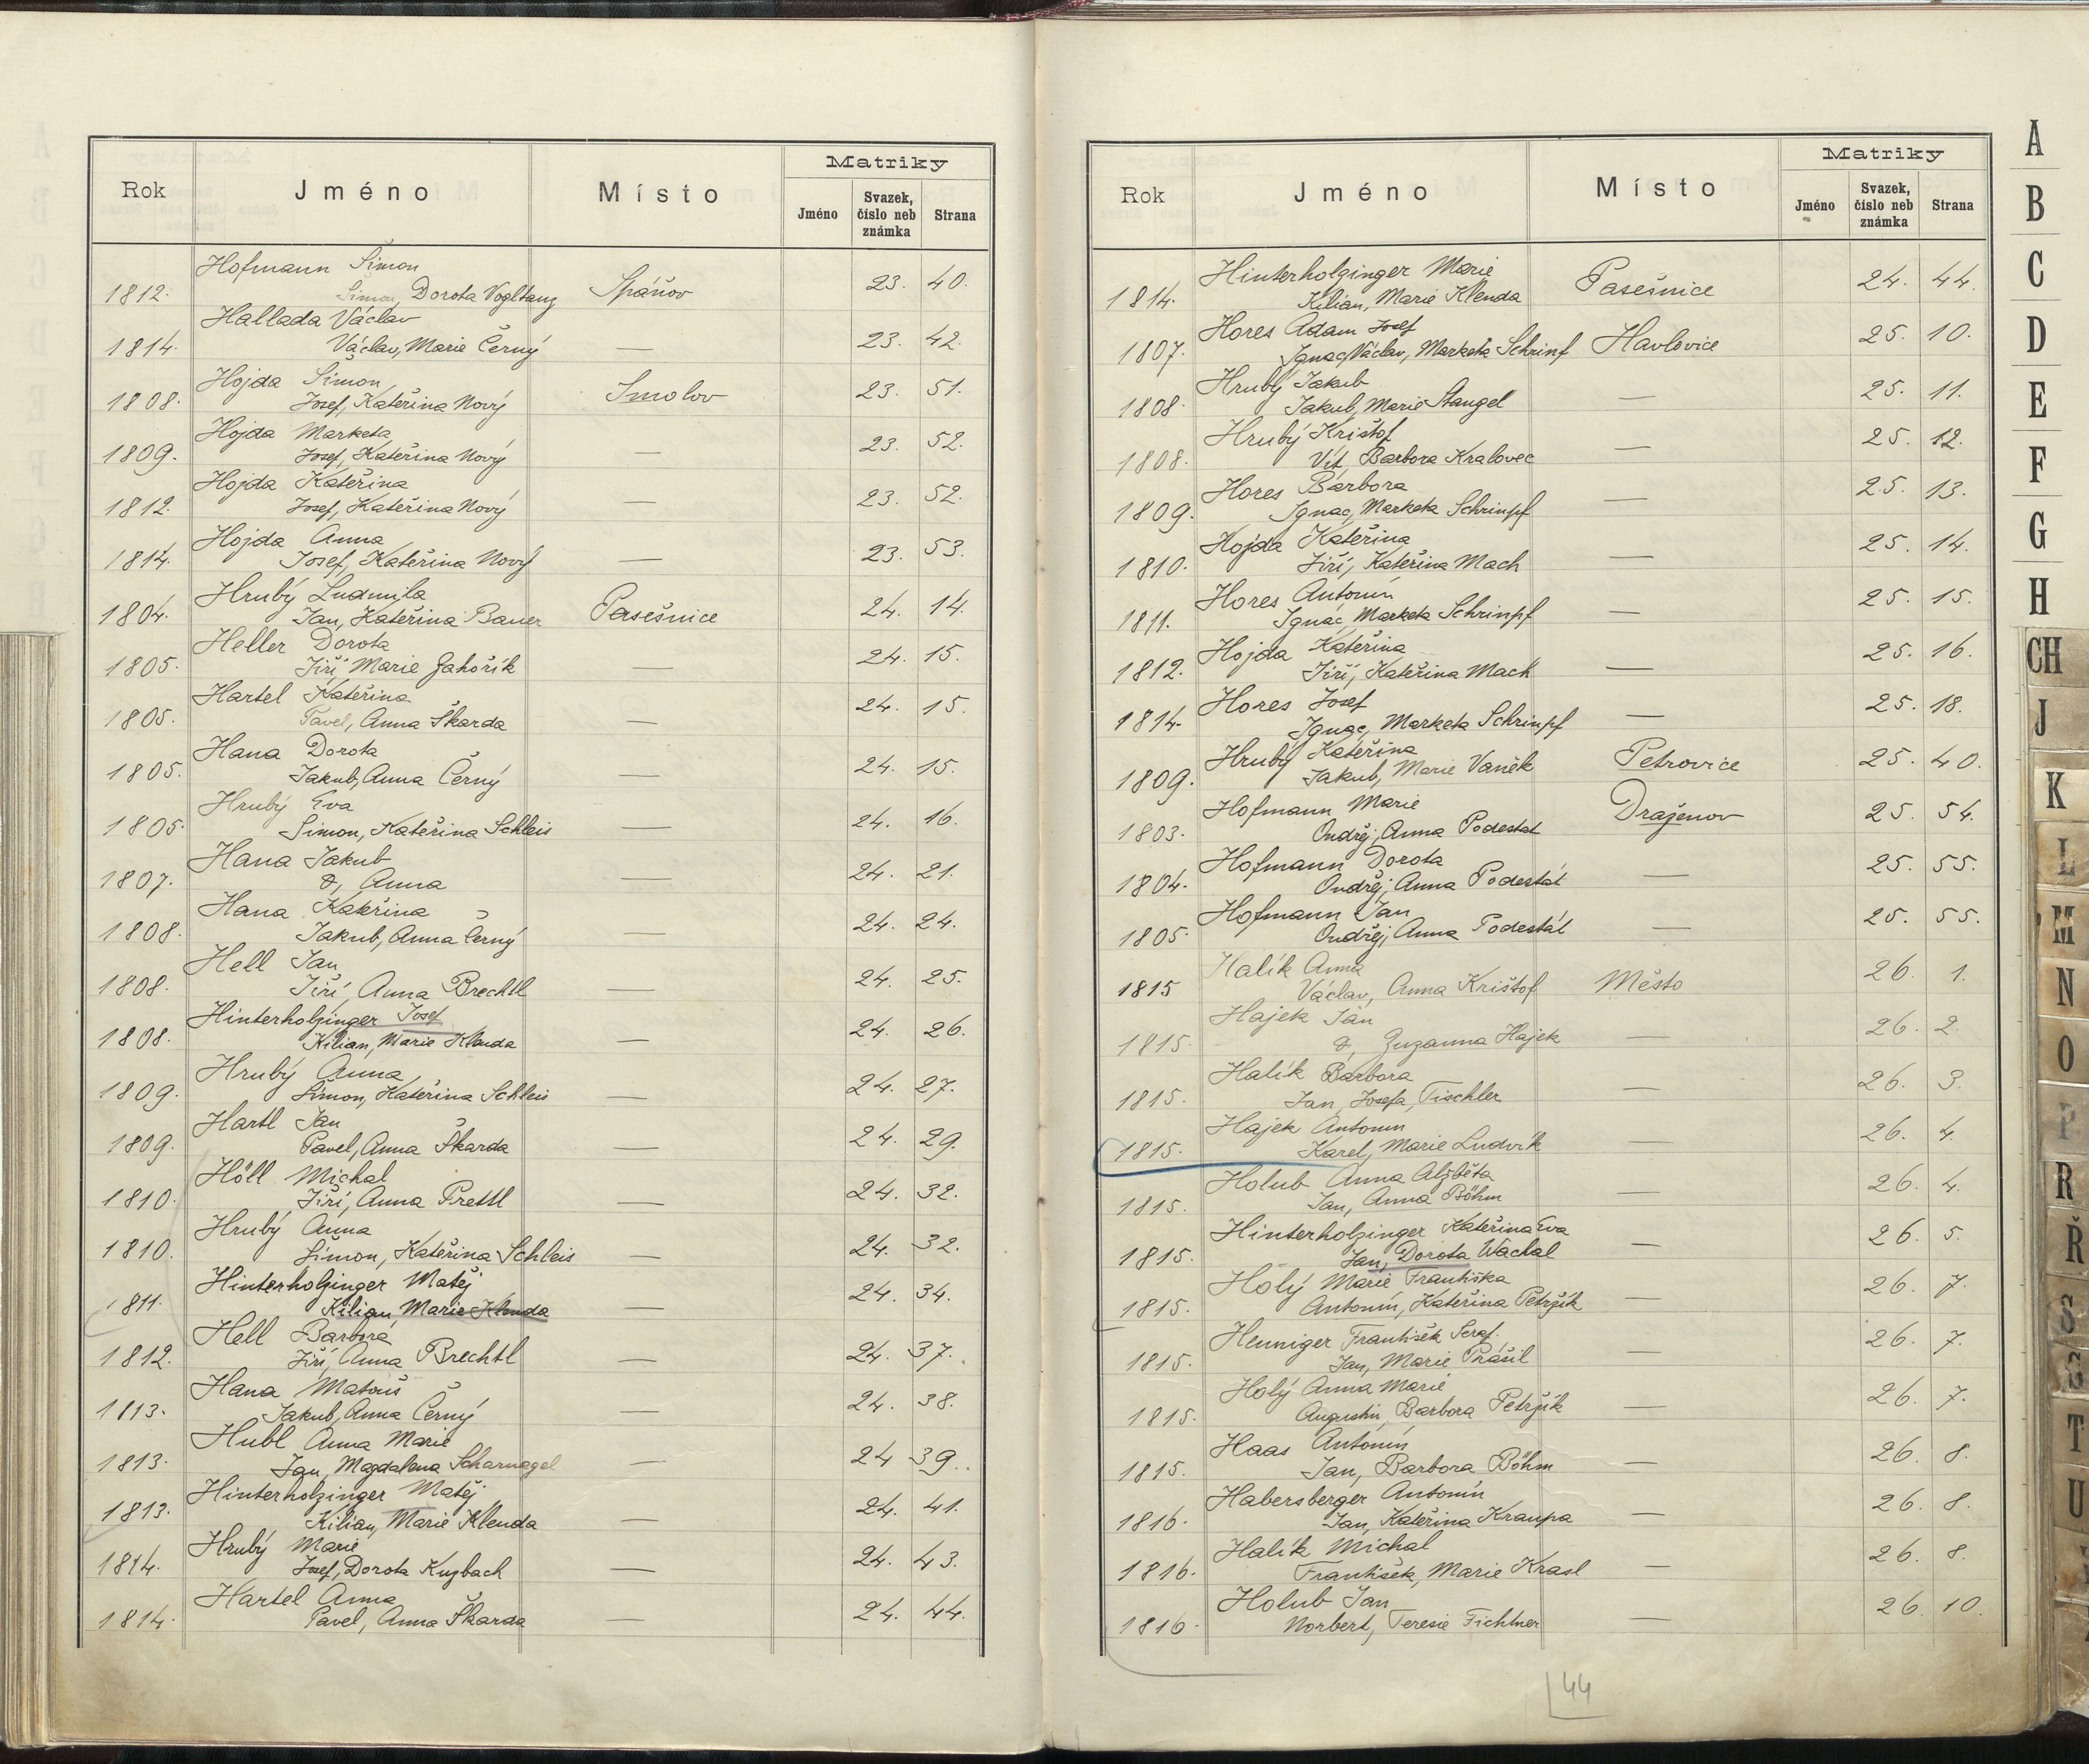 Matriky
Rok Jméno Místo Jméno Svazek, číslo neb známka Strana
Hofmann Šimon
1812. Šimon, Dorota Vogltanz Spáňov 23. 40.
Hallada Václav
1814. Václav, Marie Černý — 23. 42.
Hojda Šimon
1808. Josef, Kateřina Nový Smolov 23. 51.
Hojda Marketa
1809. Josef, Kateřina Nový — 23. 52.
Hojda Kateřina
1812. Josef, Kateřina Nový — 23. 52.
Hojda Anna
1814. Josef, Kateřina Nový — 23. 53.
Hrubý Ludmila
1804. Jan, Kateřina Bauer Pasešnice 24. 14.
Heller Dorota
1805. Jiří, Marie Zahořík — 24. 15.
Hartel Kateřina
1805. Pavel, Anna Škarda — 24. 15.
Hana Dorota
1805. Jakub, Anna Černý — 24. 15.
Hrubý Eva
1805. Šimon, Kateřina Schleis — 24. 16.
Hana Jakub
1807. &, Anna — 24. 21.
Hana Kateřina
1808. Jakub, Anna Černý — 24. 24.
Hell Jan
1808. Jiří, Anna Brechtl — 24. 25.
Hinterholzinger Josef
1808. Kilian, Marie Klenda — 24. 26.
Hrubý Anna
1809. Šimon, Kateřina Schleis — 24. 27.
Hartl Jan
1809. Pavel, Anna Škarda — 24. 29.
Höll Michal
1810. Jiří, Anna Prettl — 24. 32.
Hrubý Anna
1810. Šimon, Kateřina Schleis — 24. 32.
Hinterholzinger Matěj
1811. Kilian, Marie Klenda — 24. 34.
Hell Barbora
1812. Jiří, Anna Brechtl — 24. 37.
Hana Matouš
1813. Jakub, Anna Černý — 24. 38.
Hubl Anna Marie
1813. Jan, Magdalena Scharnagel — 24 39.
Hinterholzinger Matěj
1813. Kilian, Marie Klenda — 24. 41.
Hrubý Marie
1814. Josef, Dorota Kuzbach — 24. 43.
Hartel Anna
1814. Pavel, Anna Škarda — 24. 44.
Matriky
Rok Jméno Místo Jméno Svazek, číslo neb známka Strana
Hinterholzinger Marie
1814. Kilian, Marie Klenda Pasešnice 24. 44.
Hores Adam Josef
1807. Ignac Václav, Marketa Schrinf Havlovice 25. 10.
Hrubý Jakub
1808. Jakub, Marie Stangel — 25. 11.
Hrubý Krištof
1808. Vít, Barbora Kralovec — 25. 12.
Hores Barbora
1809. Ignac, Marketa Schrinpf — 25. 13.
Hojda Kateřina
1810. Jiří, Kateřina Mach — 25. 14.
Hores Antonín
1811. Ignác, Marketa Schrinpf — 25. 15.
Hojda Kateřina
1812. Jiří, Kateřina Mach — 25. 16.
Hores Josef
1814. Ignac, Marketa Schrinpf — 25. 18.
Hrubý Kateřina
1809. Jakub, Marie Vaněk Petrovice 25. 40.
Hofmann Marie
1803. Ondřej, Anna Podestat Draženov 25. 54.
Hofmann Dorota
1804. Ondřej, Anna Podestát — 25. 55.
Hofmann Jan
1805. Ondřej, Anna Podestát — 25. 55.
Halík Anna
1815 Václav, Anna Krištof Město 26. 1.
Hajek Jan
1815. &, Zuzanna Hajek — 26. 2.
Halík Barbora
1815. Jan, Josefa, Tischler — 26. 3.
Hajek Antonin
1815. Karel, Marie Ludvík — 26. 4.
Holub Anna Alžběta
1815. Jan, Anna Böhm — 26. 4.
Hinterholzinger Kateřina Eva
1815. Jan, Dorota Wachal — 26. 5.
Holý Marie Františka
1815. Antonín, Kateřina Petržik — 26. 7.
Henniger František Seraf.
1815. Jan, Marie Prášil — 26. 7.
Holý Anna Marie
1815. Augustin, Barbora Petržik — 26. 7.
Haas Antonín
1815. Jan, Barbora Böhm — 26. 8.
Habersberger Antonín
1816. Jan, Kateřina Kraupa — 26. 8.
Halík Michal
1816. František, Marie Krasl — 26. 8.
Holub Jan
1816. Norbert, Teresie Fichtner — 26 10.
44
A
B
C
D
E
F
G
H
CH
J
K
L
M
N
O
P
R
Ř
S
Š
T
U